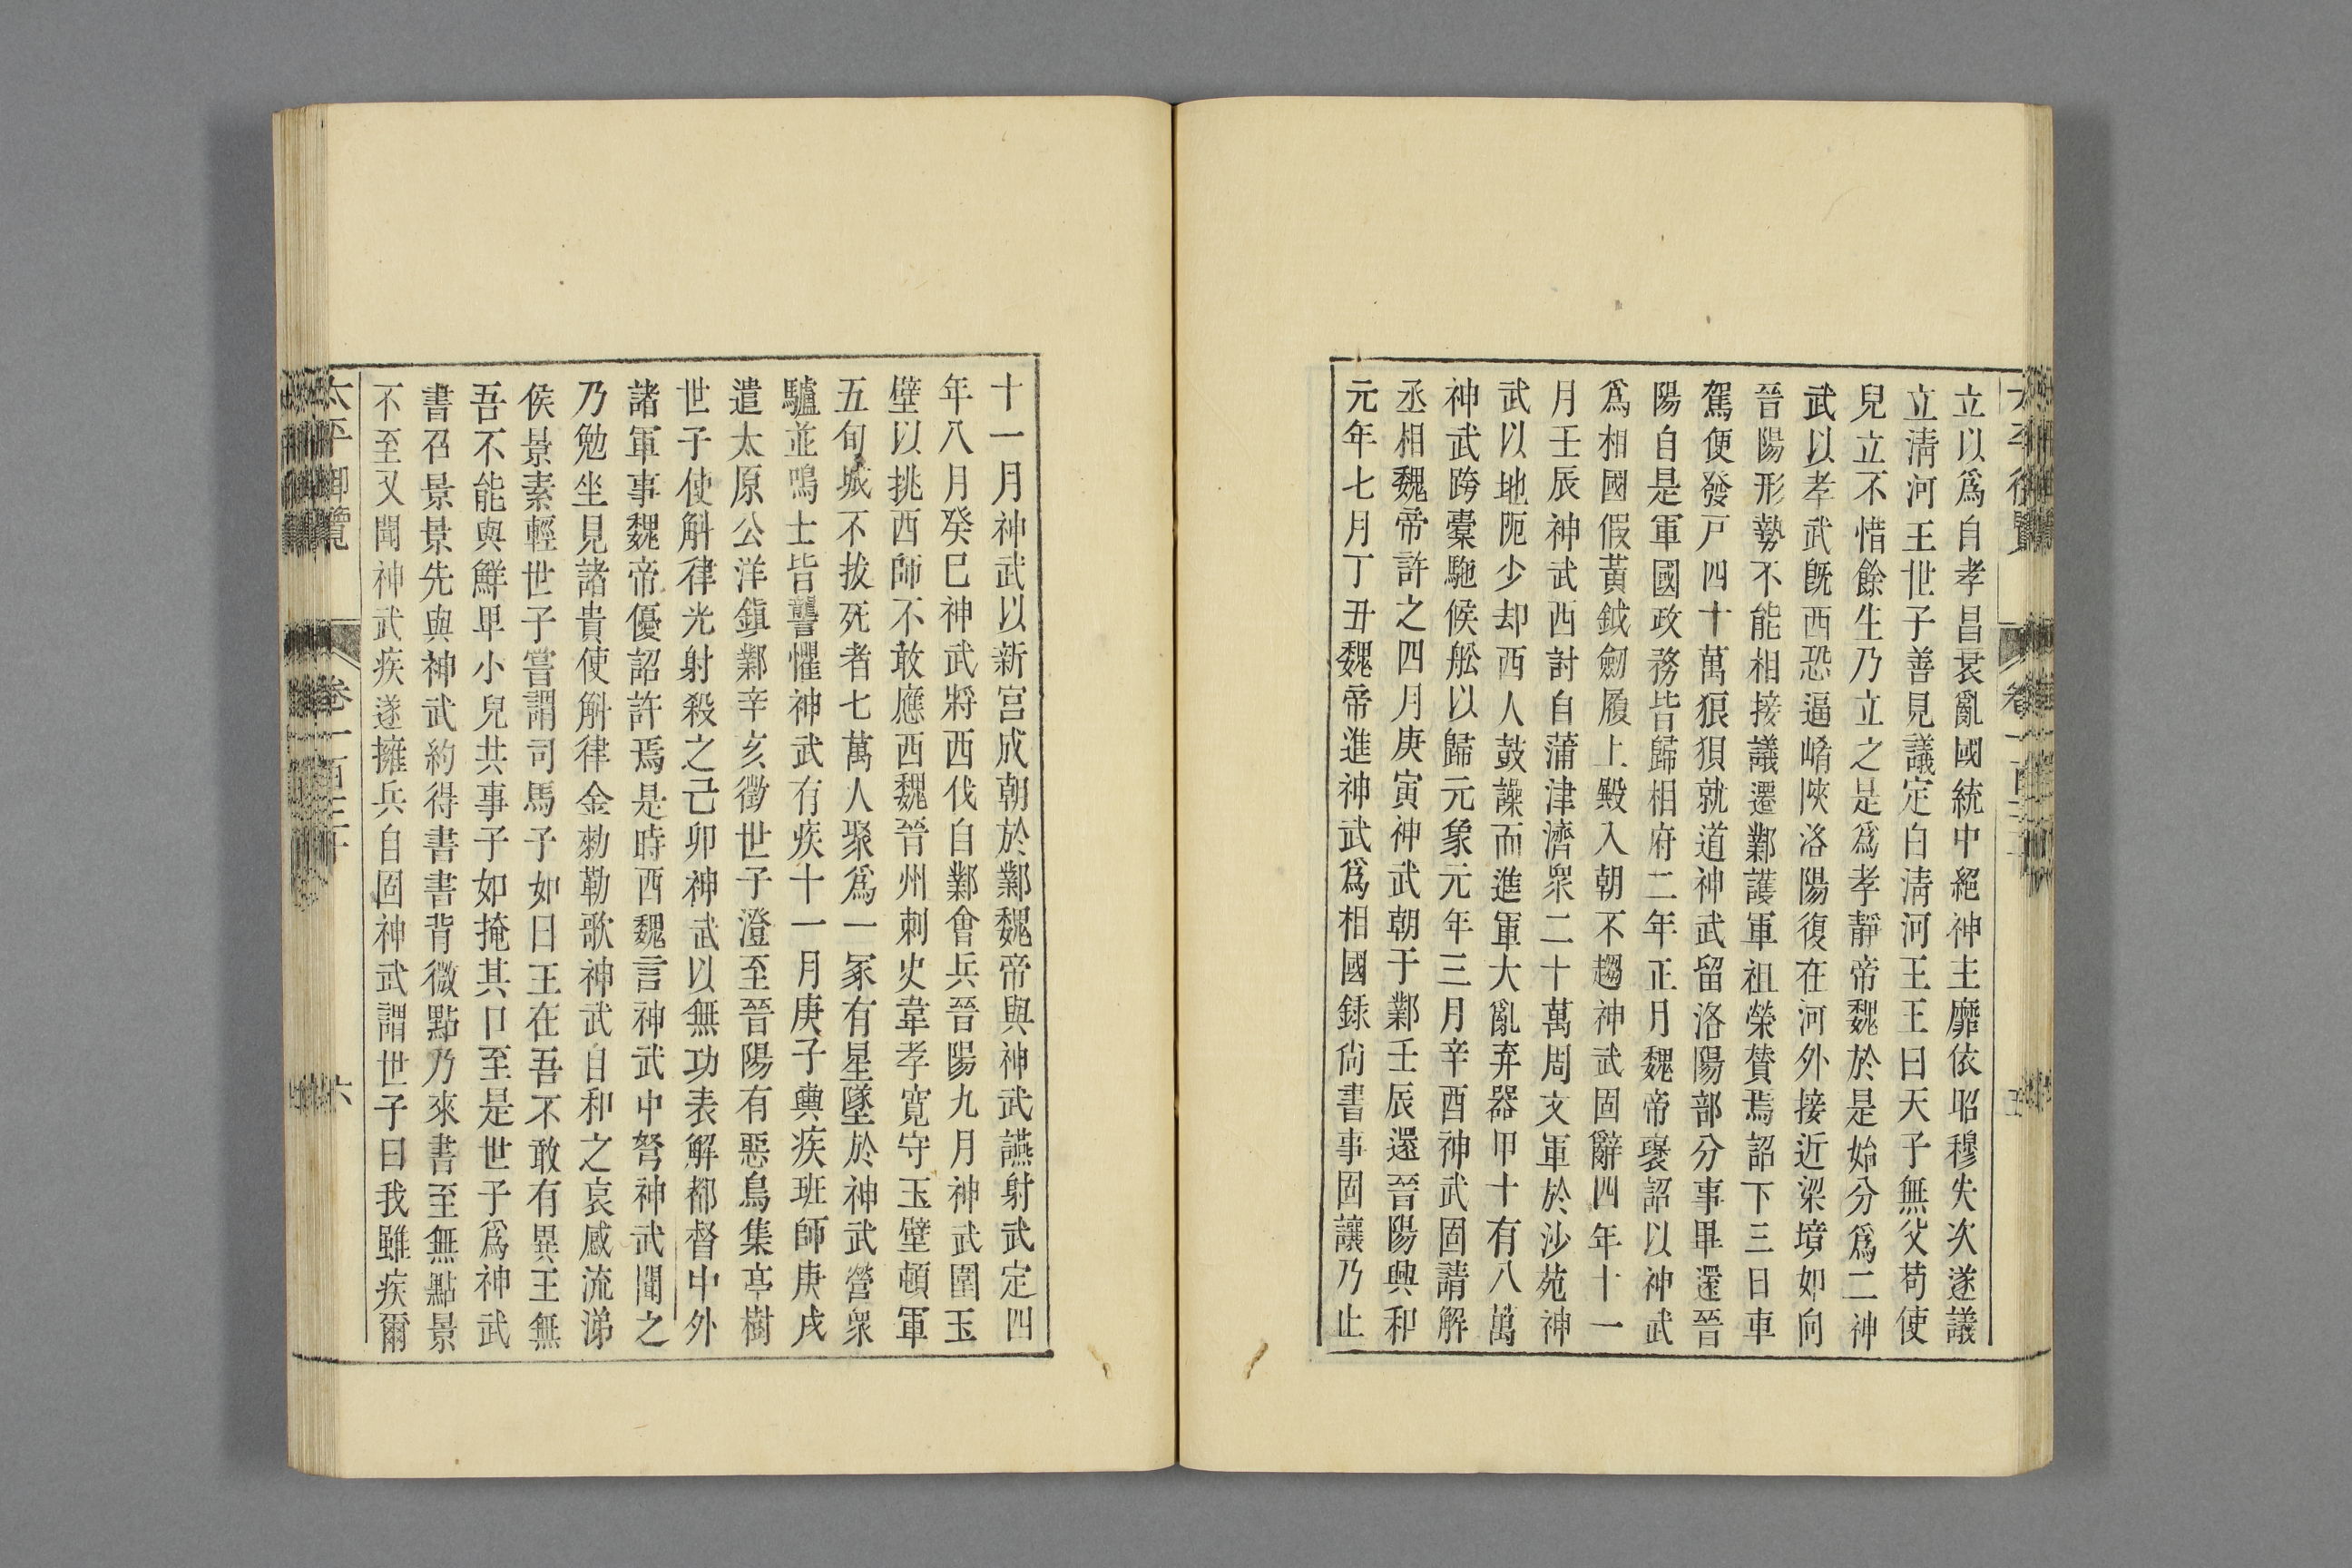 立以爲自孝昌衰亂國統中絕神主靡依昭穆失次遂議
立淸河王世子善見議定白淸河王王曰天子無父苟使
兒立不惜餘生乃立之是爲孝靜帝魏於是始分爲二神
武以孝武旣西恐逼崤陝洛陽復在河外接近梁境如向
晉陽形勢不能相接議遷鄴護軍祖榮贊焉詔下三日車
駕便發戸四十萬狼狽就道神武留洛陽部分事畢還晉
陽自是軍國政務皆歸相府二年正月魏帝襃詔以神武
爲相國假黃鉞劒履上殿入朝不趨神武固辭四年十一
月壬辰神武西討自蒲津濟衆二十萬周文軍於沙苑神
武以地阨少却西人鼓譟而進軍大亂弃器甲十有八萬
神武跨橐駞候舩以歸元象元年三月辛酉神武固請解
丞相魏帝許之四月庚寅神武朝于鄴壬辰還晉陽興和
元年七月丁丑魏帝進神武爲相國錄尙書事固讓乃止
十一月神武以新宮成朝於鄴魏帝與神武讌射武定四
年八月癸巳神武將西伐自鄴會兵晉陽九月神武圍玉
壁以挑西師不敢應西魏晉州刺史韋孝寬守玉壁頓軍
五旬城不拔死者七萬人聚爲一冢有星墜於神武營衆
驢並鳴士皆讋懼神武有疾十一月庚子輿疾班師庚戌
遣太原公洋鎭鄴辛亥徵世子澄至晉陽有惡鳥集亭樹
世子使斛律光射殺之己卯神武以無功表解都督中外
諸軍事魏帝優詔許焉是時西魏言神武中弩神武聞之
乃勉坐見諸貴使斛律金勑勒歌神武自和之哀感流涕
侯景素輕世子嘗謂司馬子如曰王在吾不敢有異王無
吾不能與鮮卑小兒共事子如掩其口至是世子爲神武
書召景景先與神武約得書書背微點乃來書至無點景
不至又聞神武疾遂擁兵自固神武謂世子曰我雖疾爾
太平御覽
卷一百三十
六